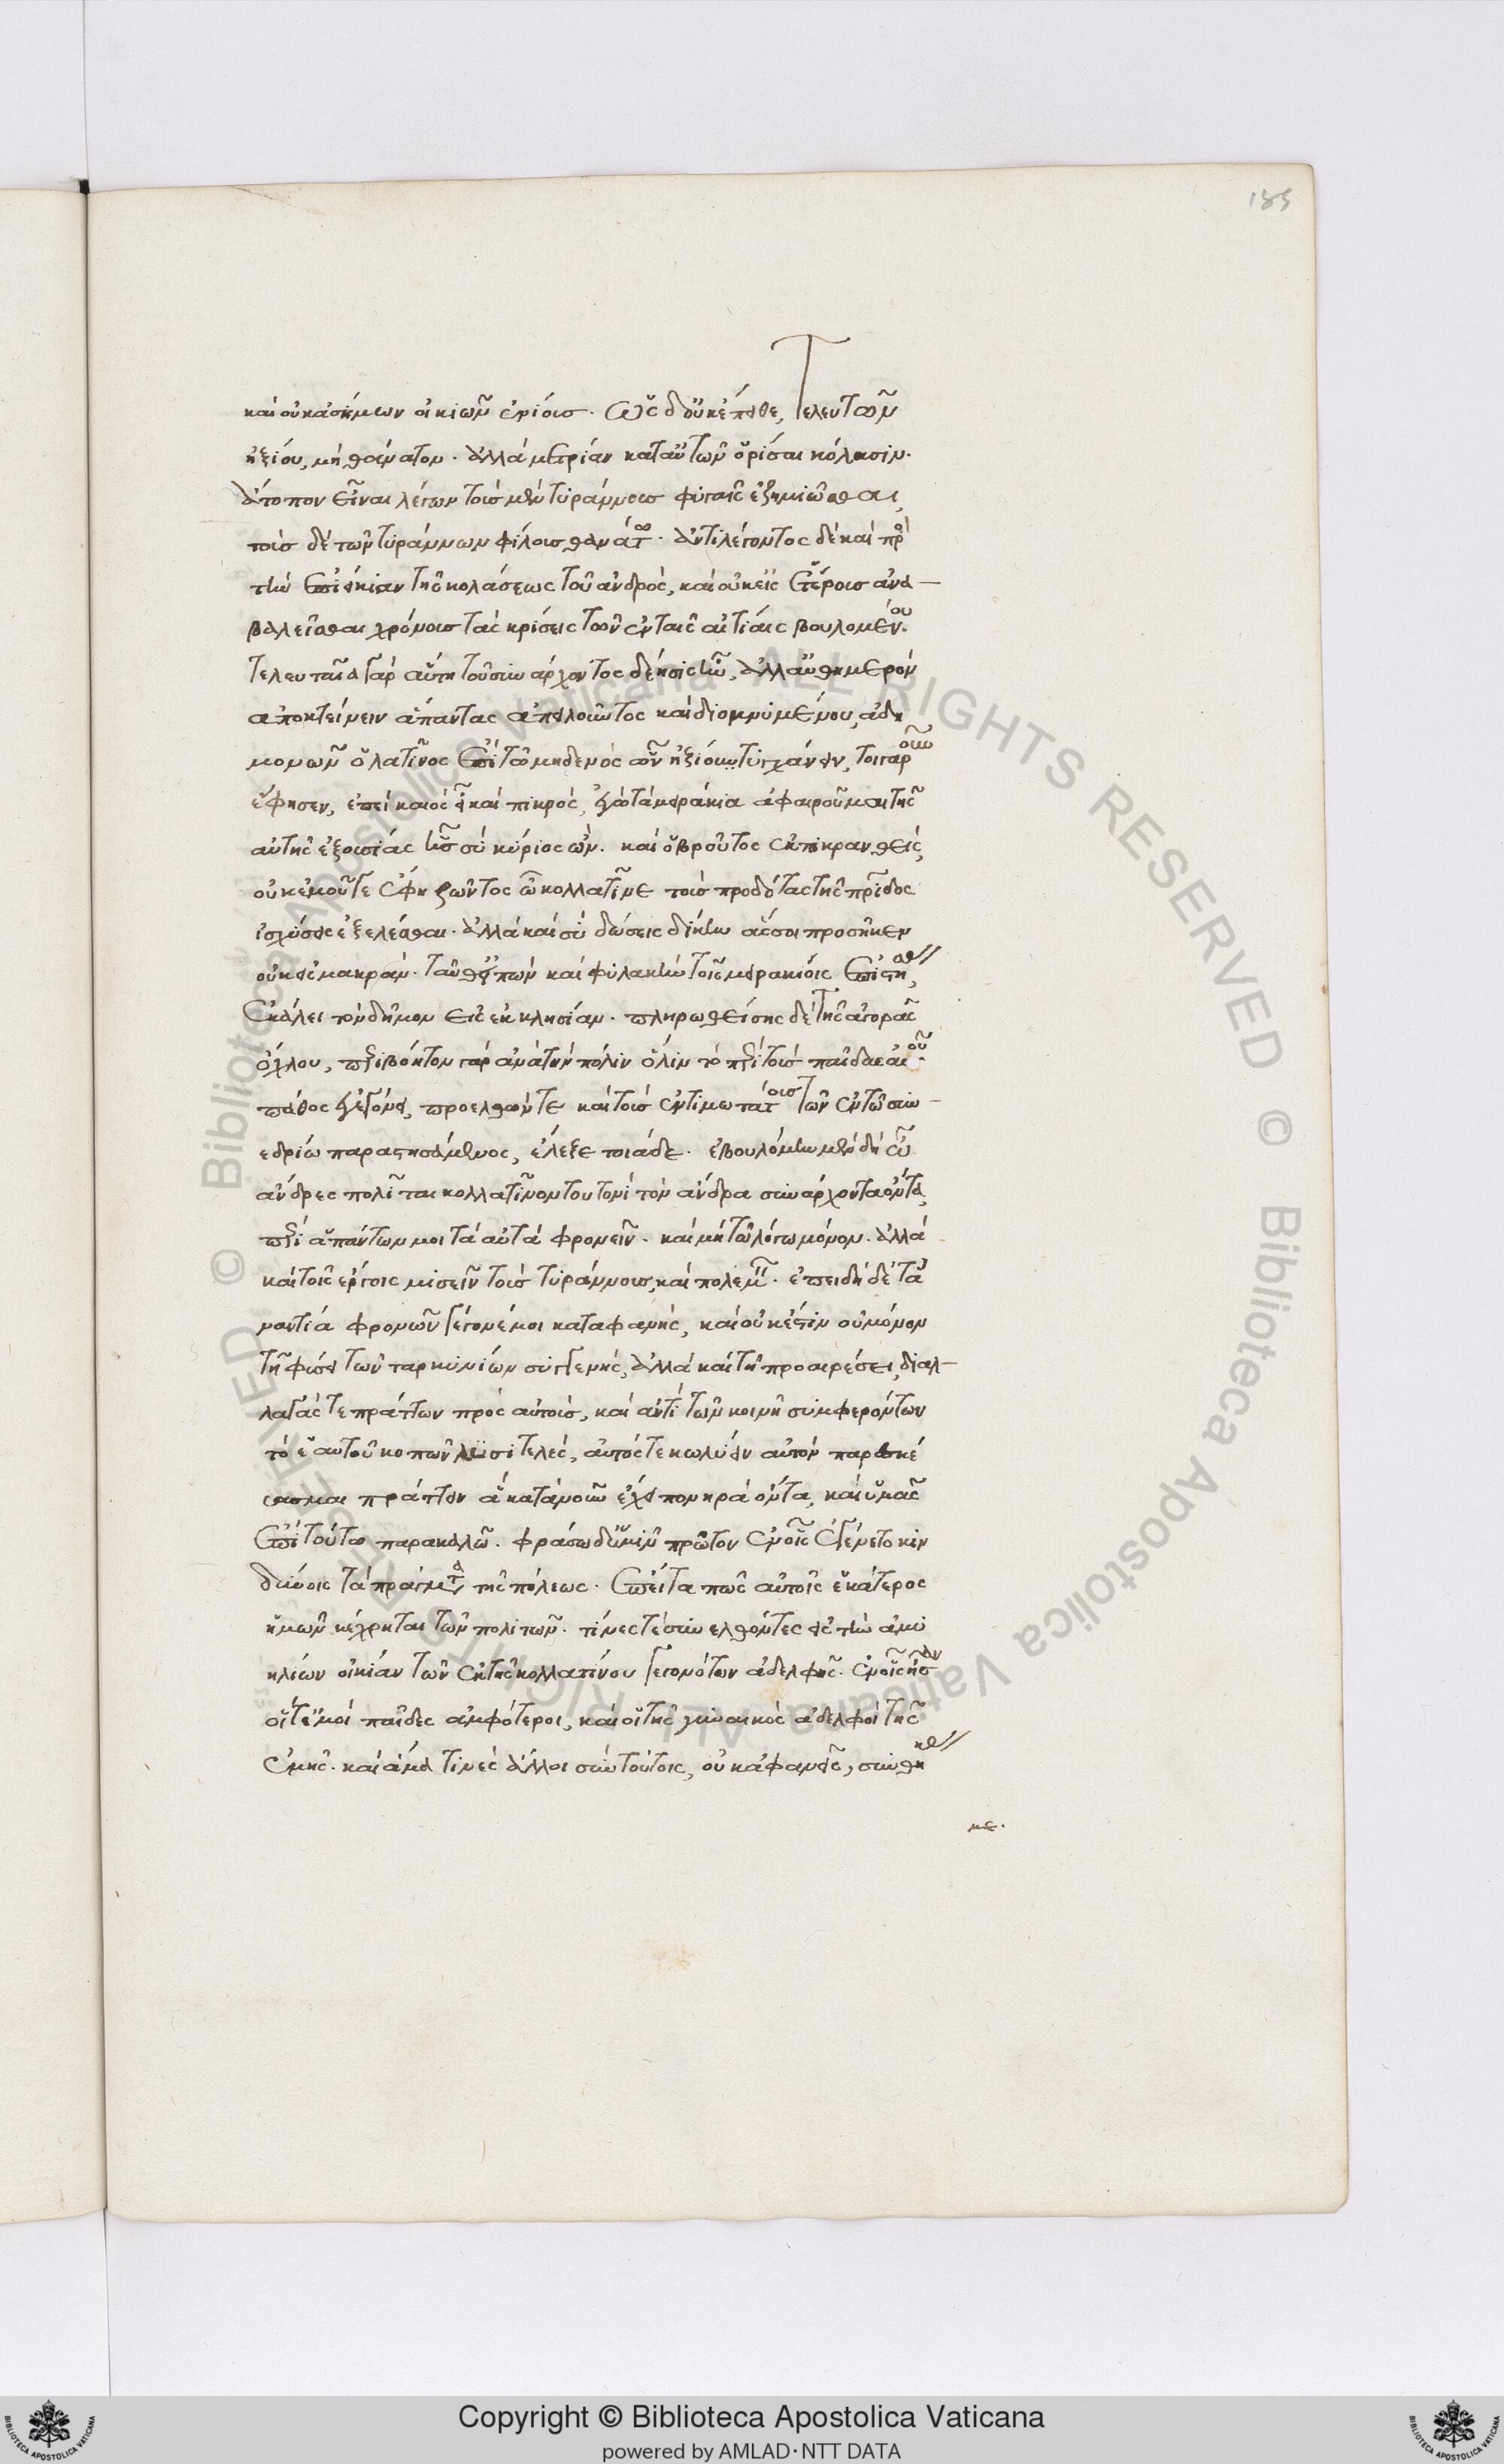 185
καὶ οὐκ ἀσήμων οἰκιῶν ἐνίοις. ὡς δ' οὐκ ἔπειθε, τελευτῶν
ἠξίου, μὴ θάνατον. ἀλλὰ μετρίαν κατ' αὐτῶν ὁρίσαι κόλασιν.
ἄτοπον εἶναι λέγων τοὺς μὲν τυράννους φυγαῖς ἐζημιῶσθαι,
τοὺς δὲ τῶν τυράννων φίλους θανάτῳ. ἀντιλέγοντος δὲ καὶ πρὸς
τὴν ἐπιείκειαν τῆς κολάσεως τοῦ ἀνδρὸς, καὶ οὐκ εἰς ἑτέρους ἀνα–
βαλεῖσθαι χρόνους τὰς κρίσεις τῶν ἐν ταῖς αἰτίαις βουλομένου.
τελευταία γὰρ αὕτη τοῦ συνάρχοντος δέησις ἦν, ἀλλ' αὐθημερὸν
ἀποκτείνειν ἅπαντας ἀπειλοῦντος καὶ διομνυμένου, ἀδη
μονῶν ὁ λατῖνος ἐπὶ τῷ μηδενὸς ὧν ἠξίου τυγχάνειν, τοιγαροῦν
ἔφησεν, ἐπεὶ καιὸς εἶ καὶ πικρὸς, ἐγὼ τὰ μειράκια ἀφαιροῦμαι τῆς
αὐτῆς ἐξουσίας ἧς σὺ κύριος ὤν. καὶ ὁ βροῦτος ἐκπικρανθεὶς,
οὐκ ἐμοῦ γε ἔφη ζῶντος ὦ κολλατῖνε τοὺς προδότας τῆς πρίδος
ἰσχύσεις ἐξελέσθαι. ἀλλὰ καὶ σὺ δώσεις δίκην ἃς σοι προσῆκεν
οὐκ εἰς μακράν. ταῦθ' εἰπὼν καὶ φυλακὴν τοῖς μειρακίοις ἐπιστήσας,
ἐκάλει τὸν δῆμον εἰς ἐκκλησίαν. πληρωθείσης δὲ τῆς ἀγορᾶς
ὄχλου, περιβόητον γὰρ ἀνὰ τὴν πόλιν ὅλην τὸ περὶ τοὺς παῖδας αὐτοῦ
πάθος ἐγεγόνει, προελθών τε καὶ τοὺς ἐντιμωτάτους τῶν ἐν τῷ συν–
εδρίῳ παραστησάμενος, ἔλεξε τοιάδε. ἐβουλόμην μὲν δὴ ὦ
ἄνδρες πολῖται κολλατῖνον τουτονὶ τὸν ἄνδρα συνάρχοντα ὄντα,
περὶ ἁπάντων μοι τὰ αὐτὰ φρονεῖν. καὶ μὴ τῷ λόγῳ μόνον. ἀλλὰ
καὶ τοῖς ἔργοις μισεῖν τοὺς τυράννους, καὶ πολεμεῖν. ἐπειδὴ δὲ τἀ
ναντία φρονῶν γέγονέ μοι καταφανὴς, καὶ οὐκ ἔστιν οὐ μόνον
τῇ φύσει τῶν ταρκυνίων συγγενὴς, ἀλλὰ καὶ τῇ προαιρέσει, διαλ–
λαγάς τε πράττων πρὸς αὐτοὺς, καὶ ἀντὶ τῶν κοινῇ συμφερόντων
τὸ ἑαυτοῦ σκοπῶν λυσιτελὲς, αὐτός τε κωλύειν αὐτὸν παρεσκεύ
ασμαι πράττειν ἃ κατὰ νοῦν ἔχει πονηρὰ ὄντα, καὶ ὑμᾶς
ἐπὶ τοῦτο παρακαλῶ. φράσω δ' ὑμῖν πρῶτον ἐν οἷς ἐγένετο κιν
δύνοις τὰ πράγματα τῆς πόλεως. ἔπειτα πῶς αὐτοῖς ἑκάτερος
ἡμῶν κέχρηται τῶν πολιτῶν. τινές τε συνελθόντες εἰς τὴν ἀκυ
ηλίων οἰκίαν τῶν ἐκ τῆς κολλατίνου γεγονότων ἀδελφῆς. ἐν οἷς ἦσαν
οἵ τε ἐμοὶ παῖδες ἀμφότεροι, καὶ οἱ τῆς γυναικὸς ἀδελφοὶ τῆς
ἐμῆς. καὶ ἅμα τινὲς ἄλλοι σὺν τούτοις, οὐκ ἀφανεῖς, συνθήκας
κε.
Copyright © Biblioteca Apostolica Vaticana
powered by AMLAD·NTT DATA
© Biblioteca Apostolica Vaticana ALL RIGHTS RESERVED